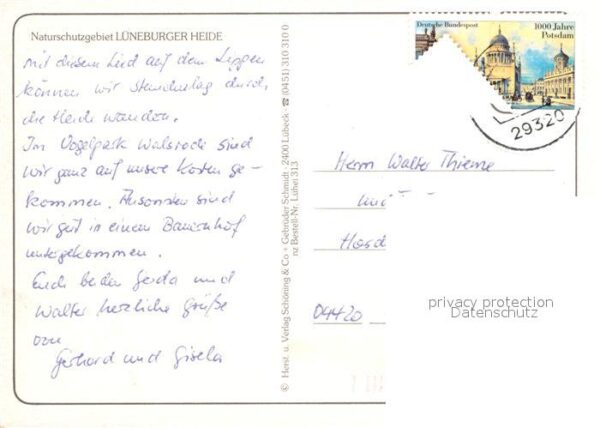 Naturschutzgebiet LÜNEBURGER HEIDE
mit diesem Lied auf den Lippen
können wir stundenlag durch
die Heide wandern.
Im Vogelpark Walsrode sind
wir ganz auf unsere Kosten ge-
kommen. Ansonsten sind
wir gut in einem Bauernhof
untergekommen.
Euch beiden Gerda und
Walter herzliche Grüße
von
Gerhard und Gisela
© Herst. u. Verlag Schöning & Co + Gebrüder Schmidt, 2400 Lübeck ☎ (0451) 310 310 0
nz Bestell-Nr. Luhei 313
Deutsche Bundespost
1000 Jahre
Potsdam
29320
Herrn Walter Thieme
04420
privacy protection
Datenschutz